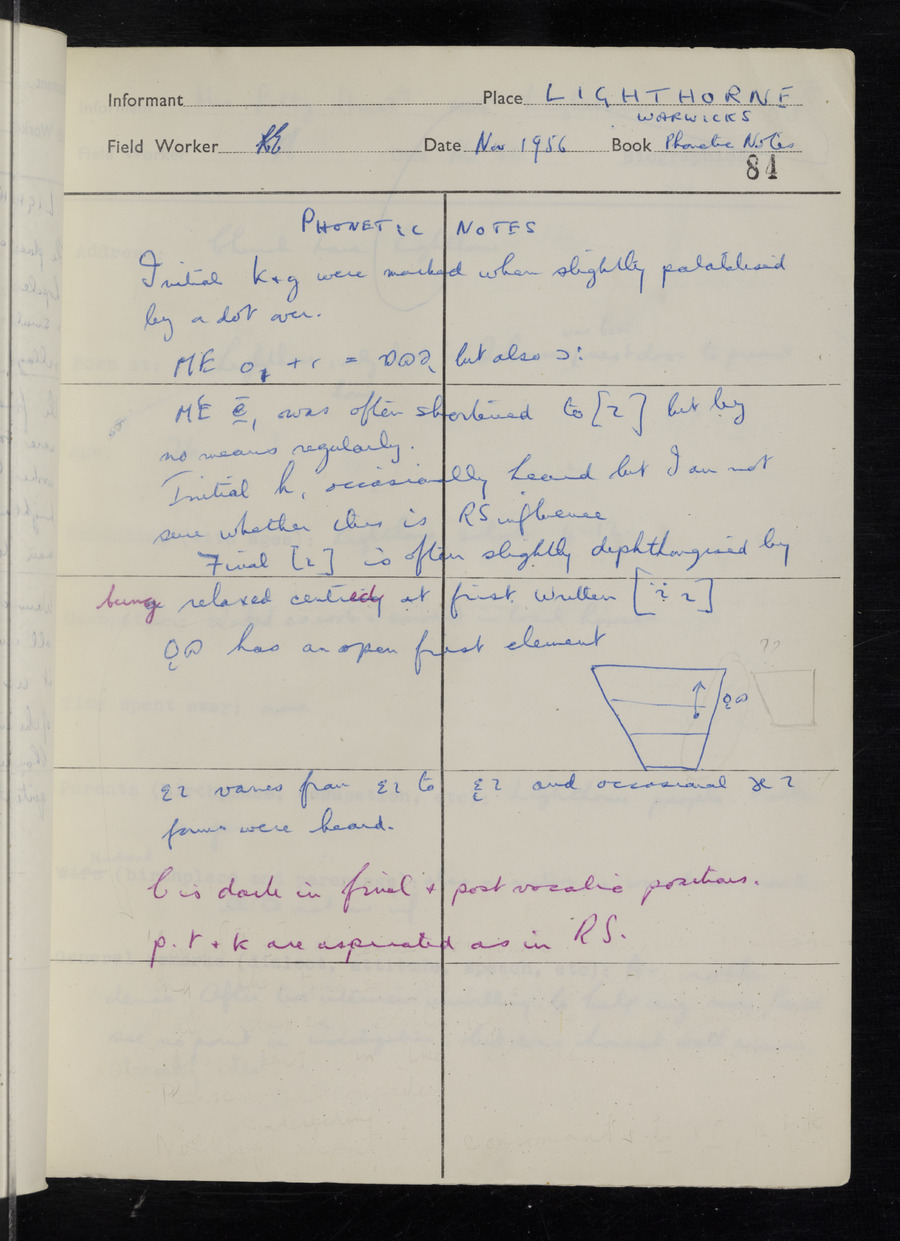 Informant Place LIGHTHORNE
WARWICKS
Field Worker Date Nov 1956 Book Phonetic Notes
84
PHONETIC NOTES
Initial k + g were marked when slightly palatalised
by a dot over.
ME + r = but also ɔ:
ME ē, was often shortened to [ɪ] but by
no means regularly.
Initial h, occasionally heard but I am not
sure whether this is RS influence
Final [ɪ] is often slightly diphthongised by
being relaxed centrally at first written [ɪ̈ ɪ]
has an open first element
??
ɛɪ varies from ɛɪ to ɛ̞ɪ and occasional æɪ
forms were heard.
l is dark in final + post vocalic positions.
p. t + k are aspirated as in RS.